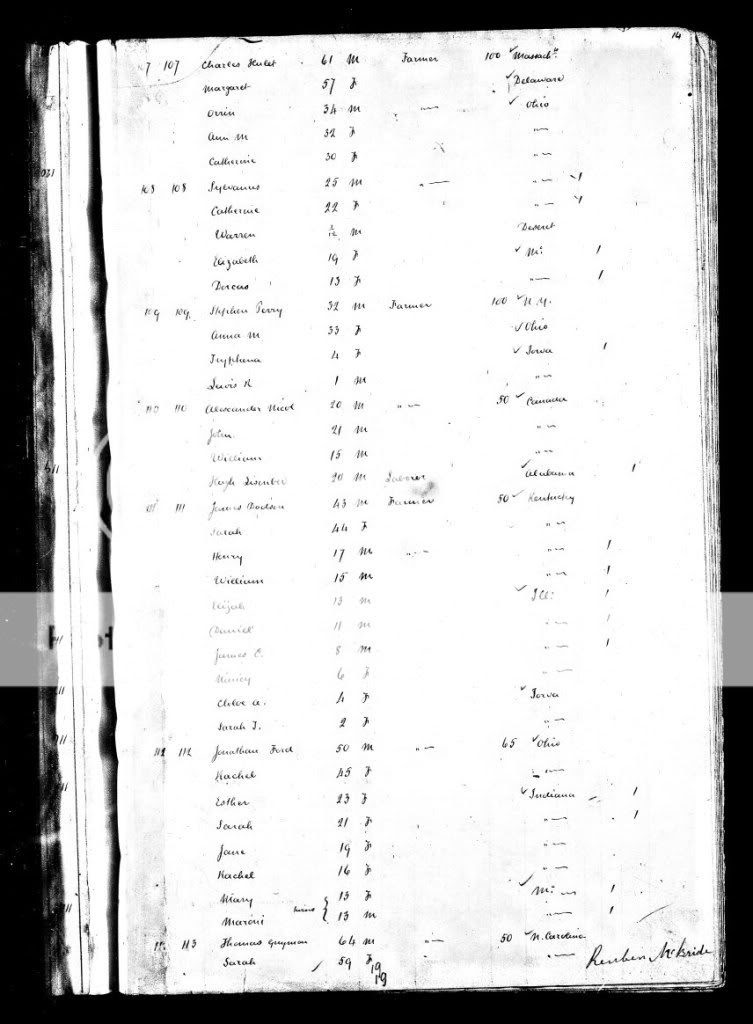 14
7 107 Charles Hulet 61 M Farmer 100 Massach
Margaret 57 F Delaware
Orrin 34 M " Ohio
Ann M 32 F "
Catherine 30 F "
108 108 Sylvanus 25 M " "
Catherine 22 F "
Warren /12 M Deseret
Elizabeth 19 F Mi: 1
Dorcas 13 F " 1
109 109 Stephen Perry 32 M Farmer 100 N.Y.
Anna M 33 F Ohio
Tryphena 4 F Iowa 1
Lewis R 1 M "
110 110 Alexcander Nicol 20 M " 50 Canada
John 21 M "
William 15 M "
Hugh 20 M Laborer Alabama 1
111 111 James Dodson 43 M Farmer 50 Kentucky
Sarah 44 F "
Henry 17 M " " 1
William 15 M " 1
Elijah 13 M Ill: 1
Daniel 11 M " 1
James C. 8 M " 1
Nancy 6 F "
Chloe A. 4 F Iowa
Sarah J. 2 F "
112 112 Jonathan Ford 50 M " 65 Ohio
Rachel 45 F "
Esther 23 F Indiana 1
Sarah 21 F " 1
Jane 19 F "
Rachel 16 F "
Mary 13 F Mi: 1
twins
Maroni 13 M " 1
113 Thomas Guyman 64 M " 50 N. Carolina
Sarah 59 F "
Reuben McBride
19
19